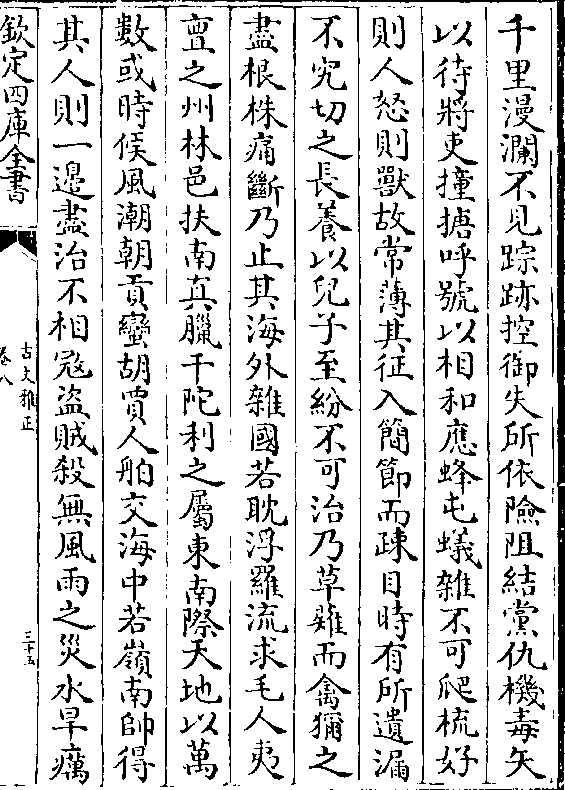 千里漫瀾不見踪跡控御失所依險阻結黨仇機毒矢
以待將吏撞搪呼號以相和應蜂屯蟻雜不可爬梳好
則人怒則獸故常薄其征入簡節而疎目時有所遺漏
不究切之長養以兒子至紛不可治乃草薙而禽獮之
盡根株痛斷乃止其海外雜國若耽浮羅流求毛人夷
亶之州林邑扶南真臘干陀利之屬東南際天地以萬
數或時候風潮朝貢蠻胡賈人舶交海中若嶺南帥得
其人則一邉盡治不相冦盜賊殺無風雨之災水旱癘
欽定四庫全書
古文雅正
卷八
三十五